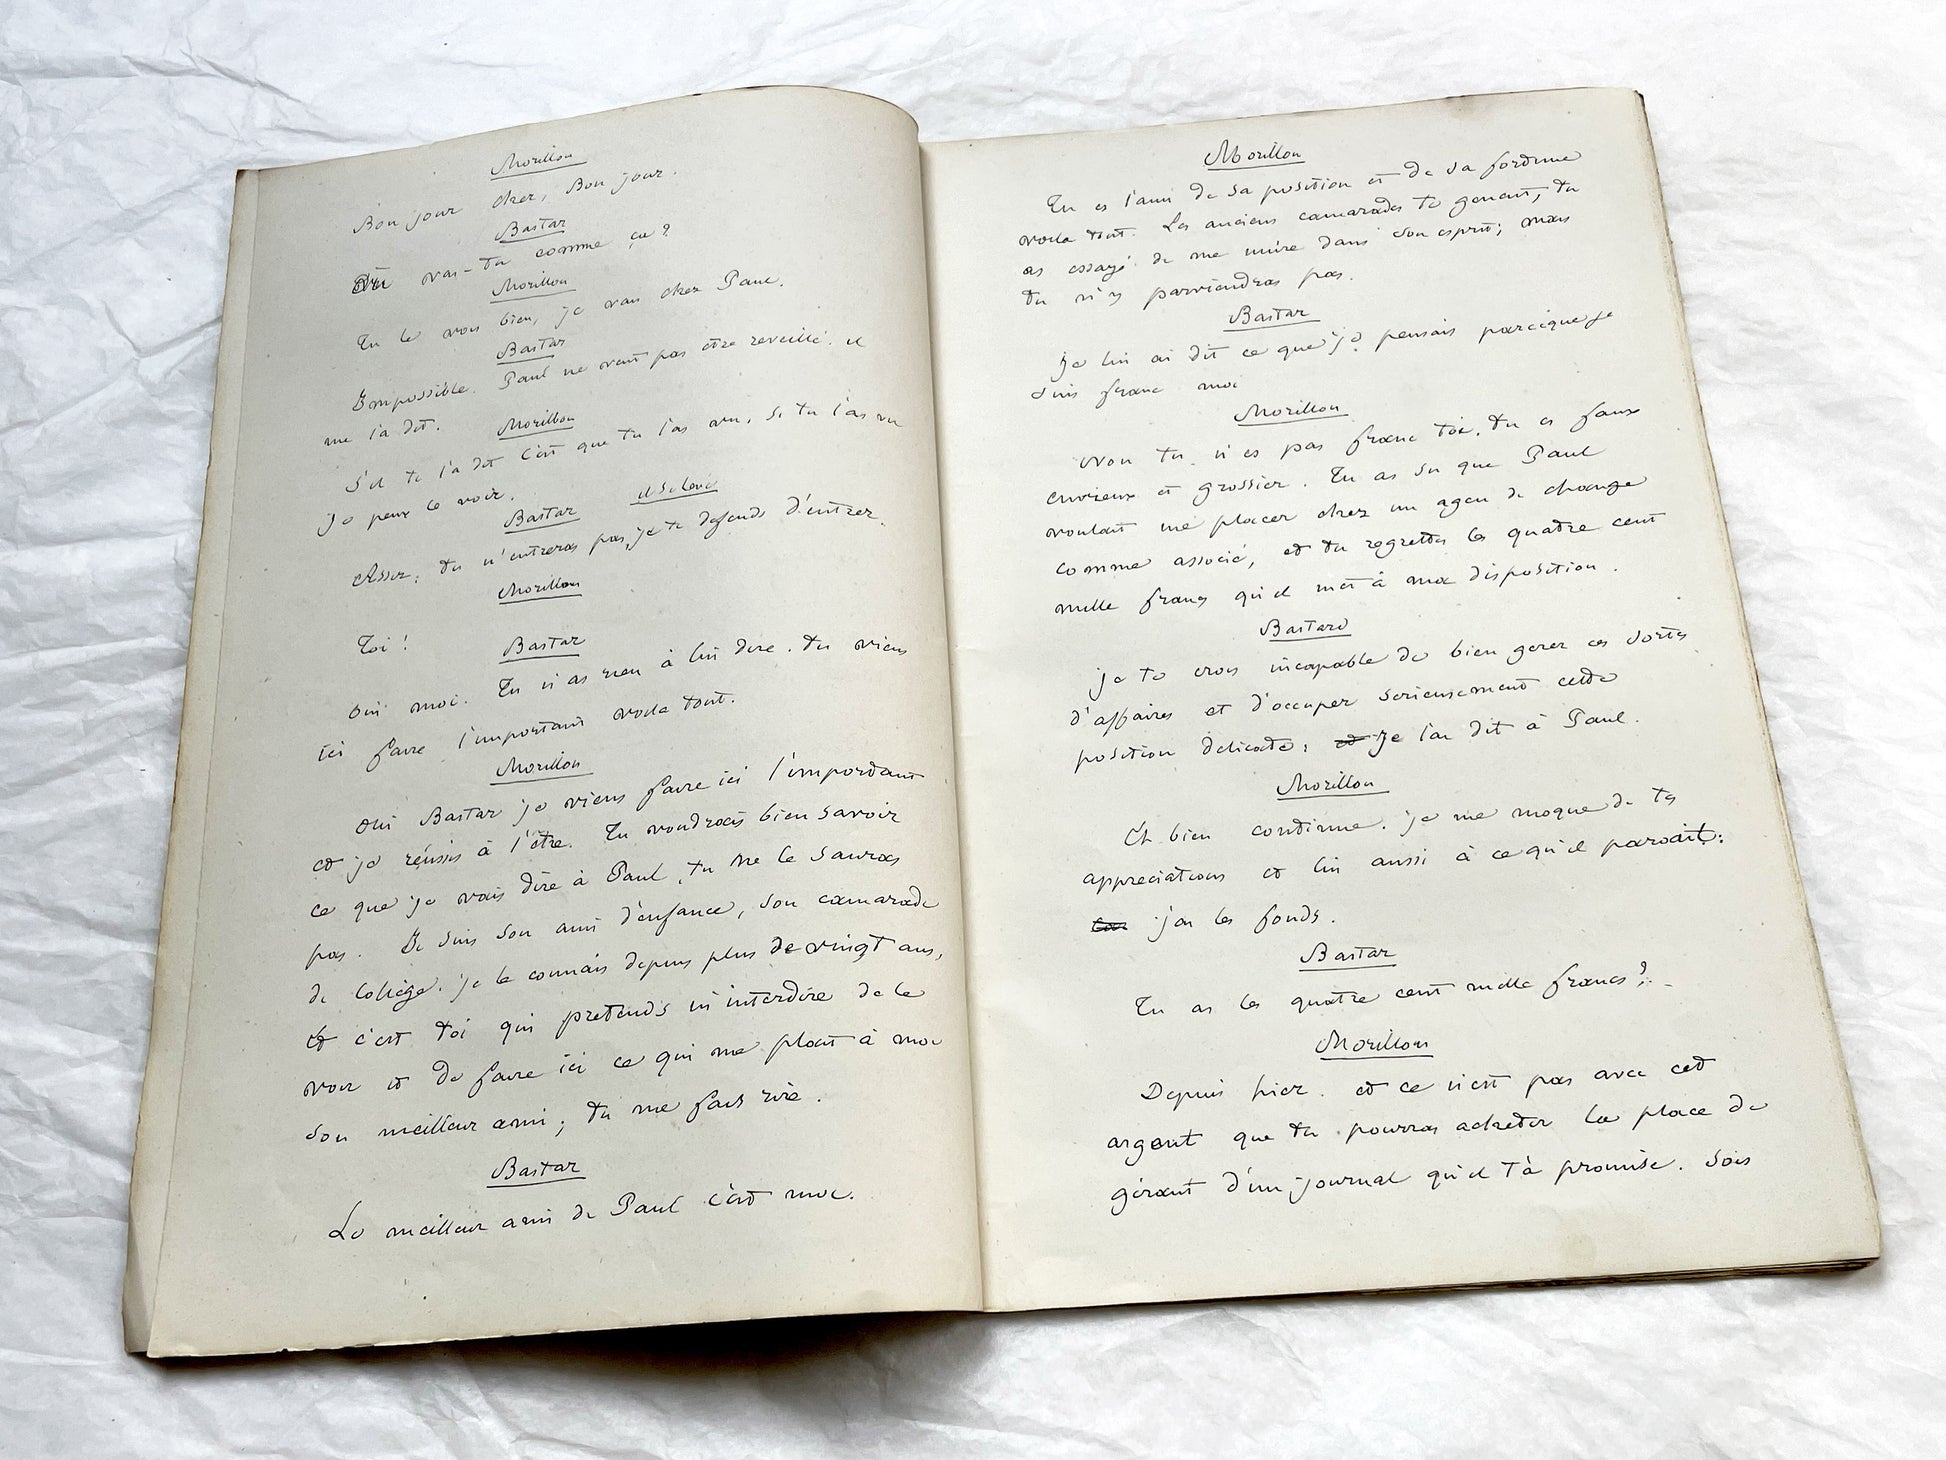 Morillon
Bon jour cher, Bon jour.
Bastar
Où vas-tu comme ça?
Morillon
Tu le vois bien, je vais chez Paul.
Bastar
Impossible. Paul ne veut pas etre reveillé. il
me l'a dit.
Morillon
S'il te l'a dit C'est que tu l'as vu. Si tu l'as vu
je peux le voir.
Bastar il se lève
Assez; tu n'entreras pas, je te defends d'entrer.
Morillon
Toi!
Bastar
Oui moi. Tu n'as rien à lui dire. tu viens
ici faire l'important voila tout.
Morillon
Oui Bastar je viens faire ici l'important
et je réussis à l'être. Tu voudrais bien savoir
ce que je vais dire à Paul, tu ne le sauras
pas. Je suis son ami d'enfance, son camarade
de collège. je le connais depuis plus de vingt ans,
Et c'est toi qui pretends m'interdire de le
voir et de faire ici ce qui me plait à moi
son meilleur ami; tu me fais rire.
Bastar
Le meilleur ami de Paul c'est moi.
Morillon
Tu es l'ami de sa position et de sa fortune
voila tout. Les anciens camarades te genent, tu
as essayé de me nuire dans son esprit; mais
tu n'y parviendras pas.
Bastar
Je lui ai dit ce que je pensais parceque je
suis franc moi
Morillon
Non tu n'es pas franc toi, tu es faux
envieux et grossier. Tu as su que Paul
voulait me placer chez un agen de change
comme associé, et tu regrettes les quatre cent
mille francs qu'il met à ma disposition.
Bastard
je te crois incapable de bien gerer ces sortes
d'affaires et d'occuper serieusement cette
position delicate; et je l'ai dit à Paul.
Morillon
Eh bien continue. je me moque de tes
appreciations et lui aussi à ce qu'il parait:
j'ai les fonds.
Bastar
Tu as les quatre cent mille francs?
Morillon
Depuis hier. et ce n'est pas avec cet
argent que tu pourras acheter la place de
gérant d'un journal qu'il t'à promise. Sois